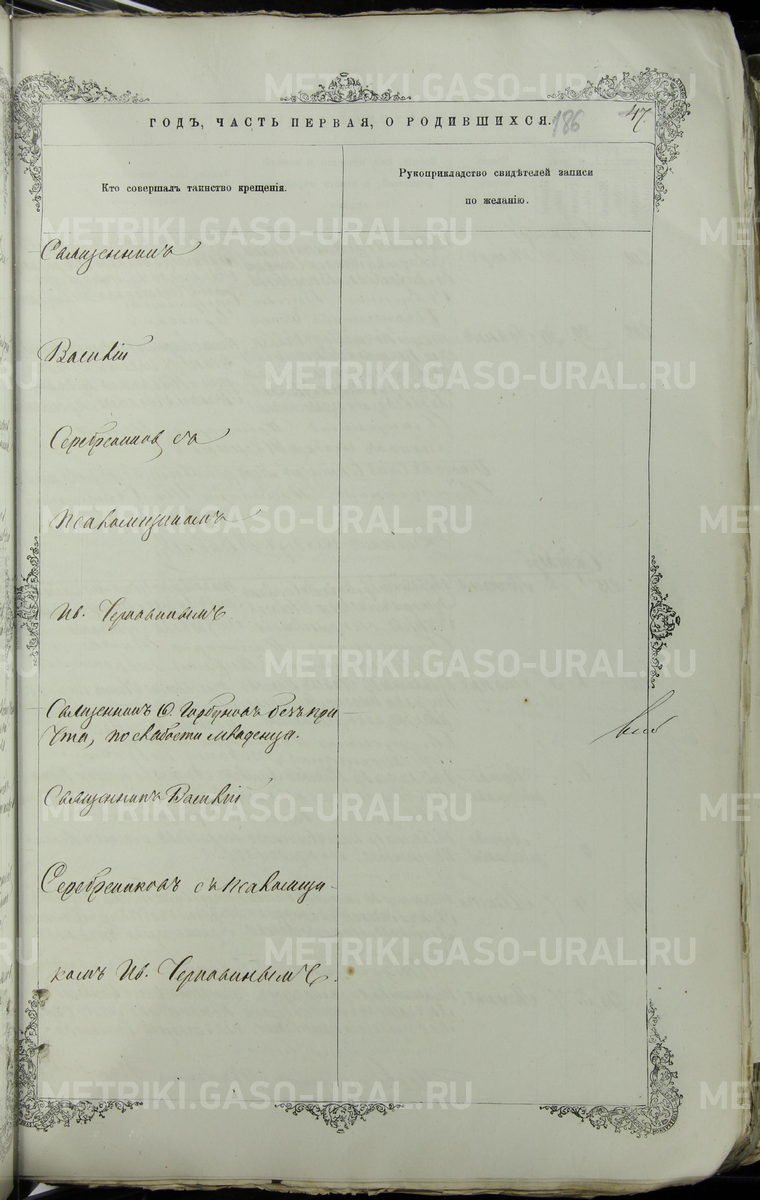 ГОДЪ, ЧАСТЬ ПЕРВАЯ, О РОДИВШИХСЯ.
186
47.
Кто совершалъ таинство крещенія.
Рукоприкладство свидѣтелей записи
по желанію.
Священникъ
Василій
Серебренников съ
Псаломщикомъ
Ив. Чернавинымъ
Священникъ Ѳ. Горбуновъ безъ при
чта, по слабости младенца.
Священникъ Василій
Серебрениковъ съ псаломщи-
комъ Ив. Чернавинымъ.
METRIKI.GASO-URAL.RU